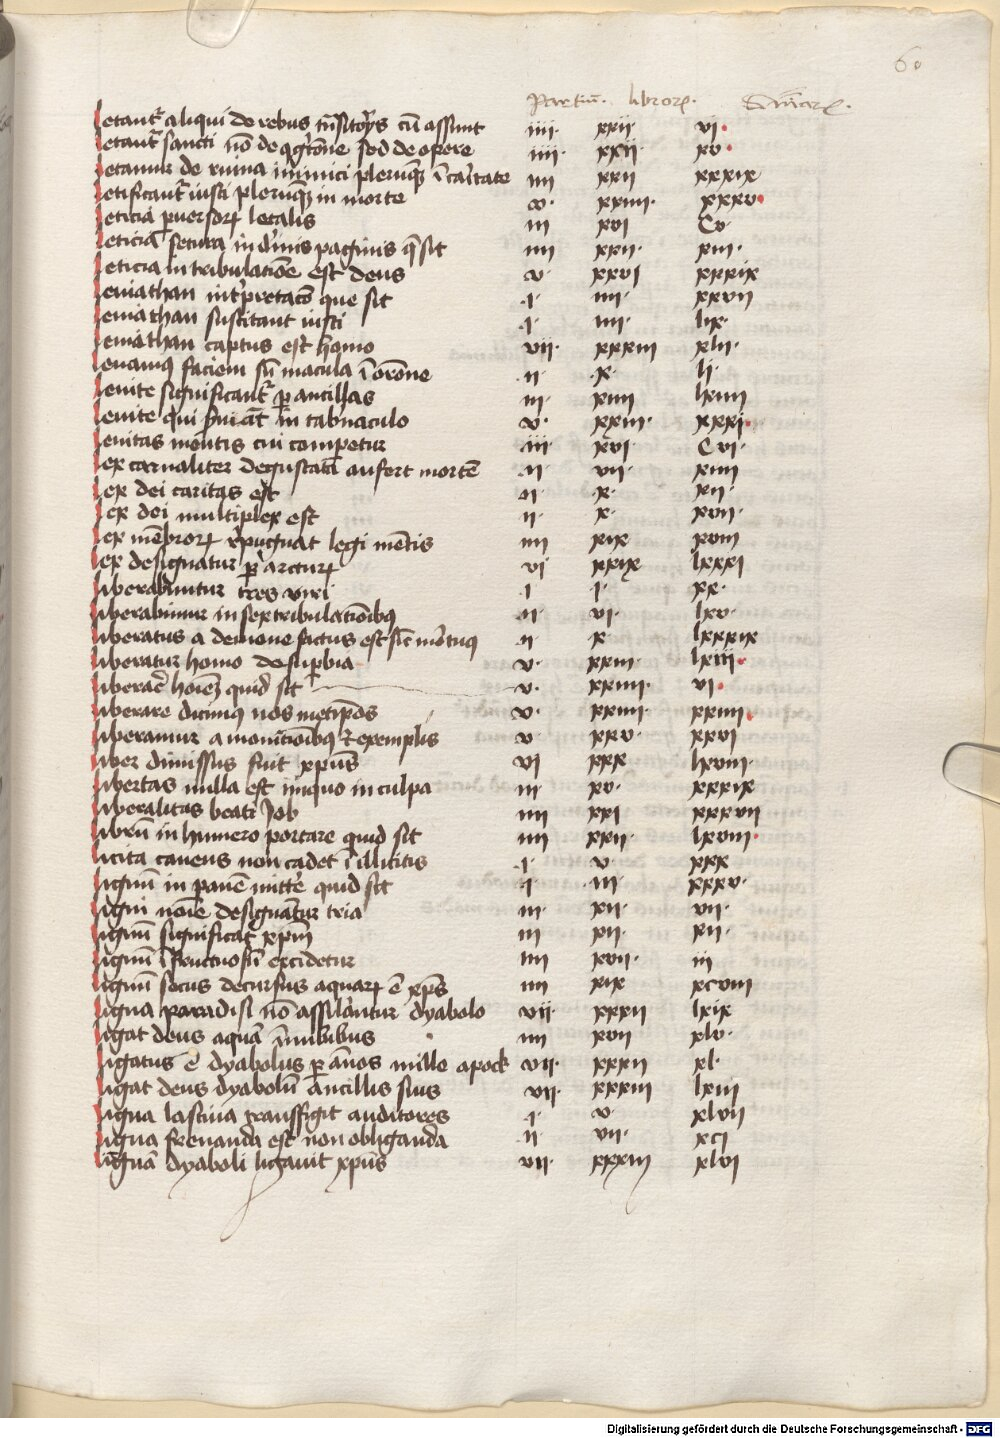 60
Partiu̅. libroꝝ. Su̅marꝝ.
Letant̉ aliqui de rebus tn̅sitorijs cu̅ assunt iiii. xxii. vi.
Letant̉ sancti no̅ de ag̅to̅ne sed de opere iiii. xxii xv.
Letamur de ruina inimici pleru̅qꝫ i̅ ca̅itate iiii xxii xxxix
Letificant̉ iusti pleru̅qꝫ in morte v. xxiiii. xxxv.
Leticia ꝑuersoꝝ letalis iii xvi Cv.
Leticia̅ secura in diuinis paginis q̅ sit iiii xxii. xiii.
Leticia in tribulatio̅e est deus v. xxvi xxxix
Leuiathan int̉pretaco̅ que sit i. iiii. xxvii
Leuiathan suscitant iusti i. iiii. lix.
Leuiathan captus est homo vii. xxxiii xlii.
Leuamꝰ faciem sn̅ macula i̅ oro̅ne ii. x. li.
Leuite significant̉ ꝑ ancillas iii. xiiii lxiiii
Leuite qui s̉uiat̅ in tab̉naculo v. xxiii. xxxi.
Leuitas mentis cui competur iii. xvi. Cvi.
Lex carnaliter degustata̅ aufert morte̅ ii. vii. xiiii
Lex dei caritas est ii. x. xii.
Lex dei multiplex est ii. x. xvii.
Lex me̅broꝝ repugnat legi me̅tis iiii xix xviii
Lex designatur ꝑ arcturꝝ vi xxix lxxxi
Liberabuntur tres viri i i. xx.
Liberabimur in sex tribulatio̅ibꝰ ii. vi. lxv.
Liberatus a demone factus est sic̅ mortuꝰ ii x lxxxix
Liberatur homo de suꝑbia v. xxiii. lxiii.
Liberac̅ ho̅iem quid sit v. xxiiii. vi.
Liberare dicimꝰ nos metip̅os v. xxiiii. xxiiii.
Liberamur a monic̅oibꝰ ⁊ exemplis v xxv. xxvi
Liber dimissus fuit xp̅us vi xxx lxviii.
Libertas nulla est iniquo in culpa iii. xv. xxxix
Liberalitas beati Job iiii xxi xxxvii
Libru̅ in humero portare quid sit iiii xxii. lxviii.
Licita cauens non cadet i̅ illicitis i. v. xxx
Lignu̅ in pane̅ mittẻ quid sit i. iii. xxxv.
Ligni no̅ie designa̅tur tria iii. xii. vii.
Lignu̅ significat xp̅m iii xii. xii.
Lignu̅ i̅fructuosu̅ excidetur iiii xvii. iii
Lignu̅ secus decursus aquaꝝ e̅ xp̅s iiii xix xcviii
Ligna paradisi no̅ assilantur dyabolo vii. xxxii lxix
Ligat deus aqua̅ i̅ nubibus iiii xvii xlv.
Ligatus e̅ dyabolus ꝑ a̅nos mille apock vii. xxxii xl.
Ligat deus dyabolu̅ ancillis suis vii. xxxiii lxiii
Ligua lasciua transfigit auditores i. v. xlvii
Ligua frenanda est non obliganda ii. vii. xci
Ligua̅ dyaboli ligauit xp̅us vii. xxxiii xlvi
Digitalisierung gefördert durch die Deutsche Forschungsgemeinschaft - DFG